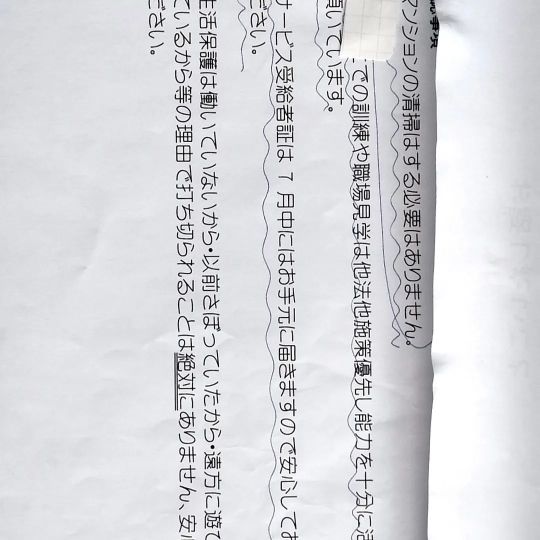 マンションの清掃はする必要はありません。
での訓練や職場見学は他法他施策優先し能力を十分に活
頂いています。
サービス受給者証は7月中にはお手元に届きますので安心してお
ださい。
生活保護は働いていないから・以前さぼっていたから・遠方に遊び
ているから等の理由で打ち切られることは絶対にありません、安心
ださい。